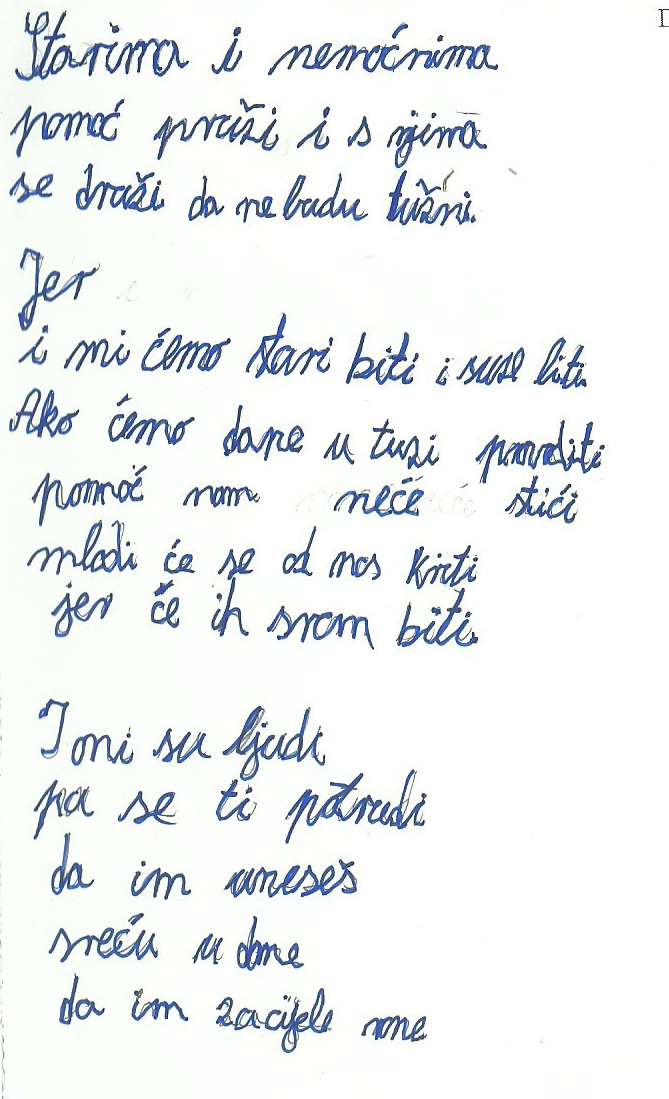 Starima i nemoćnima
pomoć pruži i s njima
se druži da ne budu tužni.
Jer
i mi ćemo stari biti i suze liti.
Ako ćemo dane u tuzi provoditi
pomoć nam neće stići
mladi će se od nas kriti
jer če ih sram biti.
I oni su ljudi
pa se ti potrudi
da im uneseš
sreću u dane
da im zacijele rane